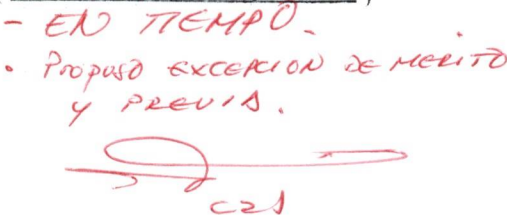 - EN TIEMPO.
. Propuso EXCEPCION DE MERITO
y PREVIA.